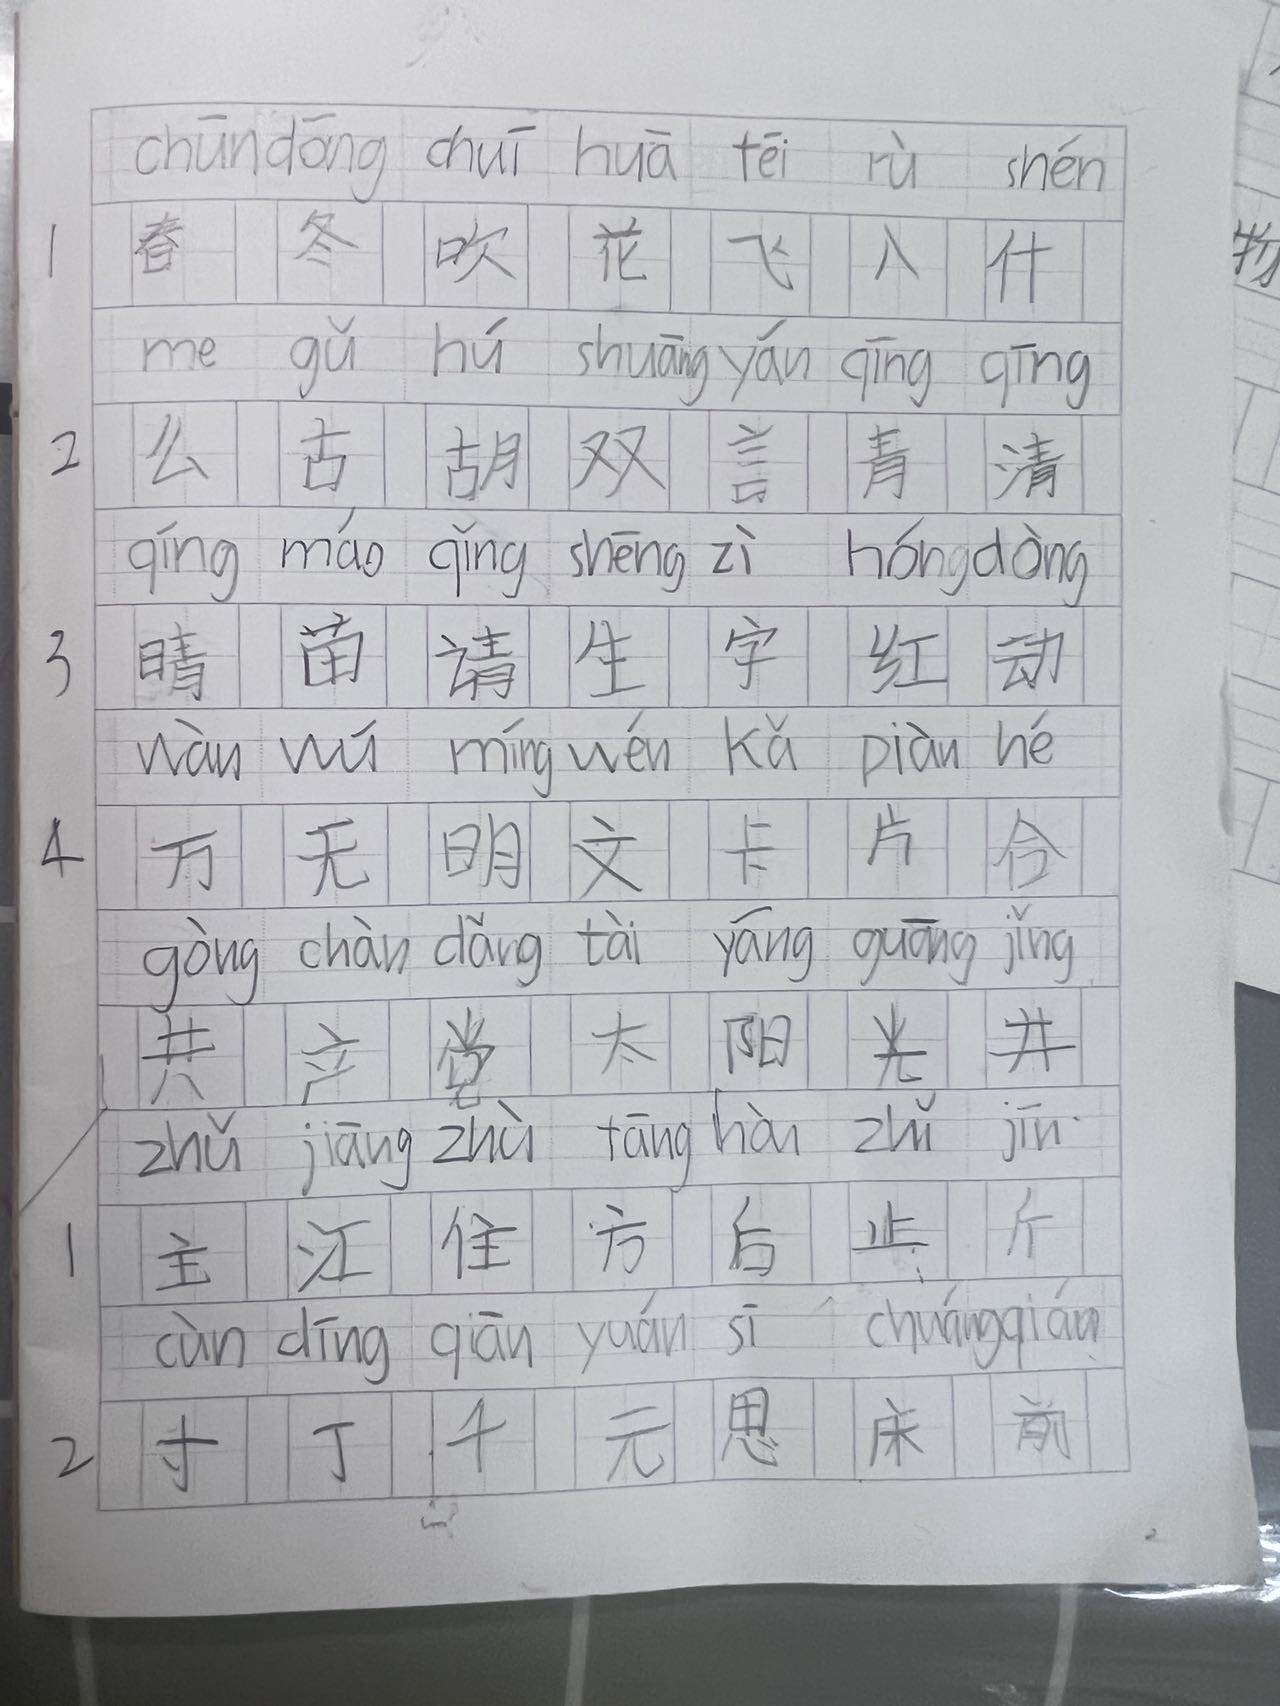 chūn dōng chuī huā fēi rù shén
1 春 冬 吹 花 飞 入 什
me gǔ hú shuāng yán qīng qīng
2 么 古 胡 双 言 青 清
qíng máo qǐng shēng zì hóng dòng
3 晴 苗 请 生 字 红 动
wàn wú míng wén kǎ piàn hé
4 万 无 明 文 卡 片 合
gòng chàn dǎng tài yáng guāng jǐng
共 产 党 太 阳 光 井
zhǔ jiāng zhù fāng hàn zhǐ jīn
1 主 江 住 方 后 止 斤
cùn dīng qiān yuán sī chuáng qián
2 寸 丁 千 元 思 床 前
物
2